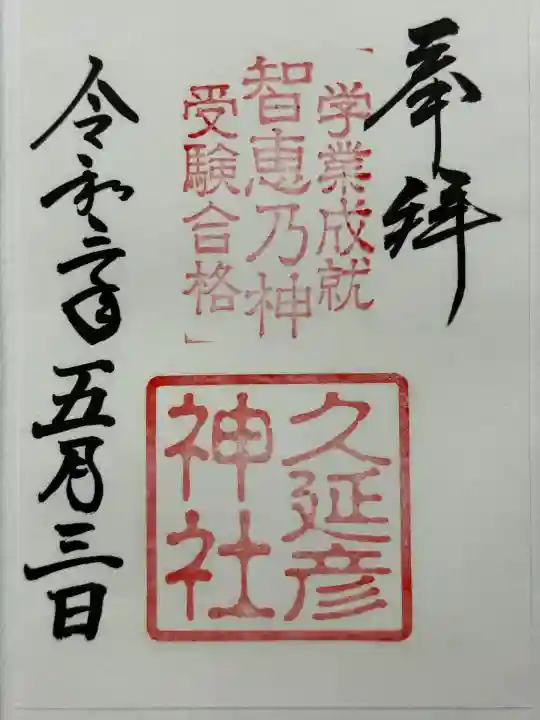 奉拝
「学業成就
智恵乃神
受験合格」
久延彦
神社
令和三年五月三日